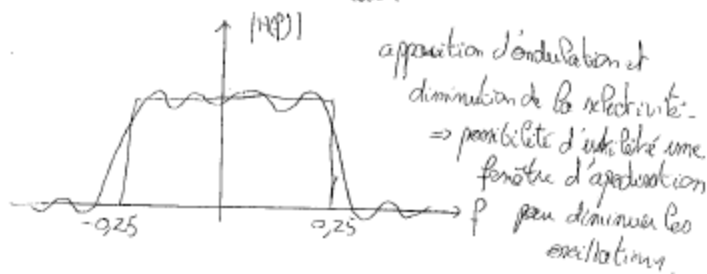 |H(f)|
apparition d'ondulation et
diminution de la sélectivité.
=> possibilité d'utilisé une
fenêtre d'apodisation
f pour diminuer les
oscillations.
-0,25 0,25